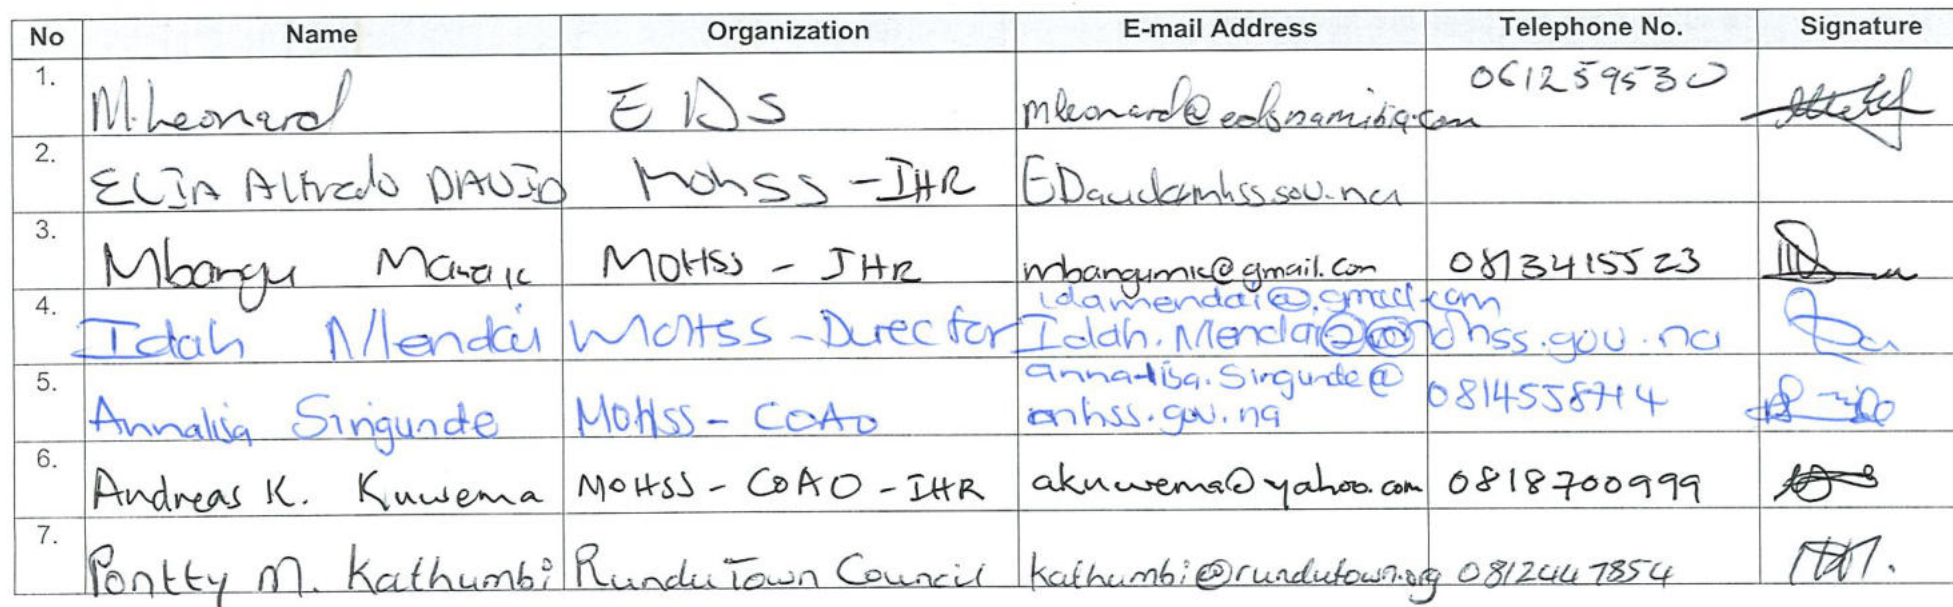 No Name Organization E-mail Address Telephone No. Signature
1. M. Leonard EDS mleonard@edsnamibia.com 061259530
2. ELIA Alfredo DAVID MohSS - IHR EDavid@mhss.gov.na
3. Mbangu MOHSS - IHR mbangumic@gmail.com 0813415523
4. Idah Mendai MOHSS - Director idamendai@gmail.com
Idah.Mendai@mhss.gov.na
5. Annalisa Singunde MOHSS - COAO annalisa.Singunde@ 0814558714
mhss.gov.na
6. Andreas K. Kuwema MOHSS - COAO - IHR akuwema@yahoo.com 0818700999
7. Pontty M. Kathumbi Rundu Town Council kathumbi@rundutown.org 0812447854